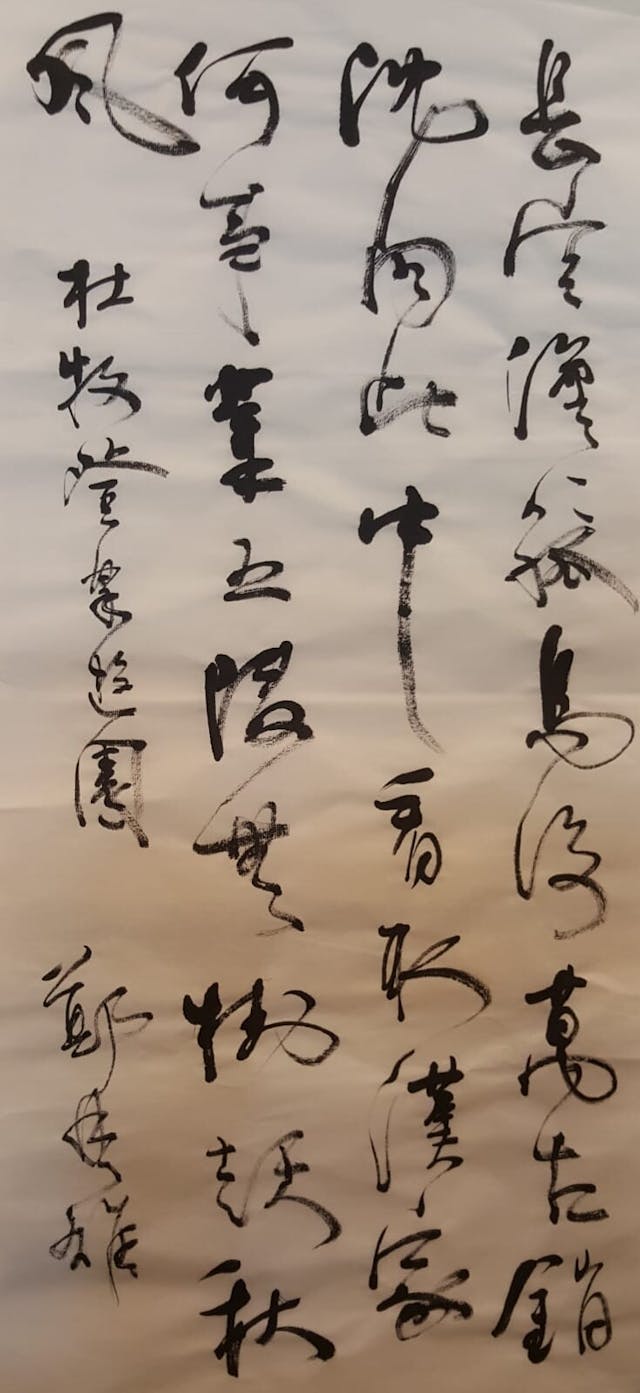 長空澹〻孤鳥沒萬古銷
沈向此中看取漢家
何事業五陵無樹起秋
風 杜牧登樂遊園 鄭 雄